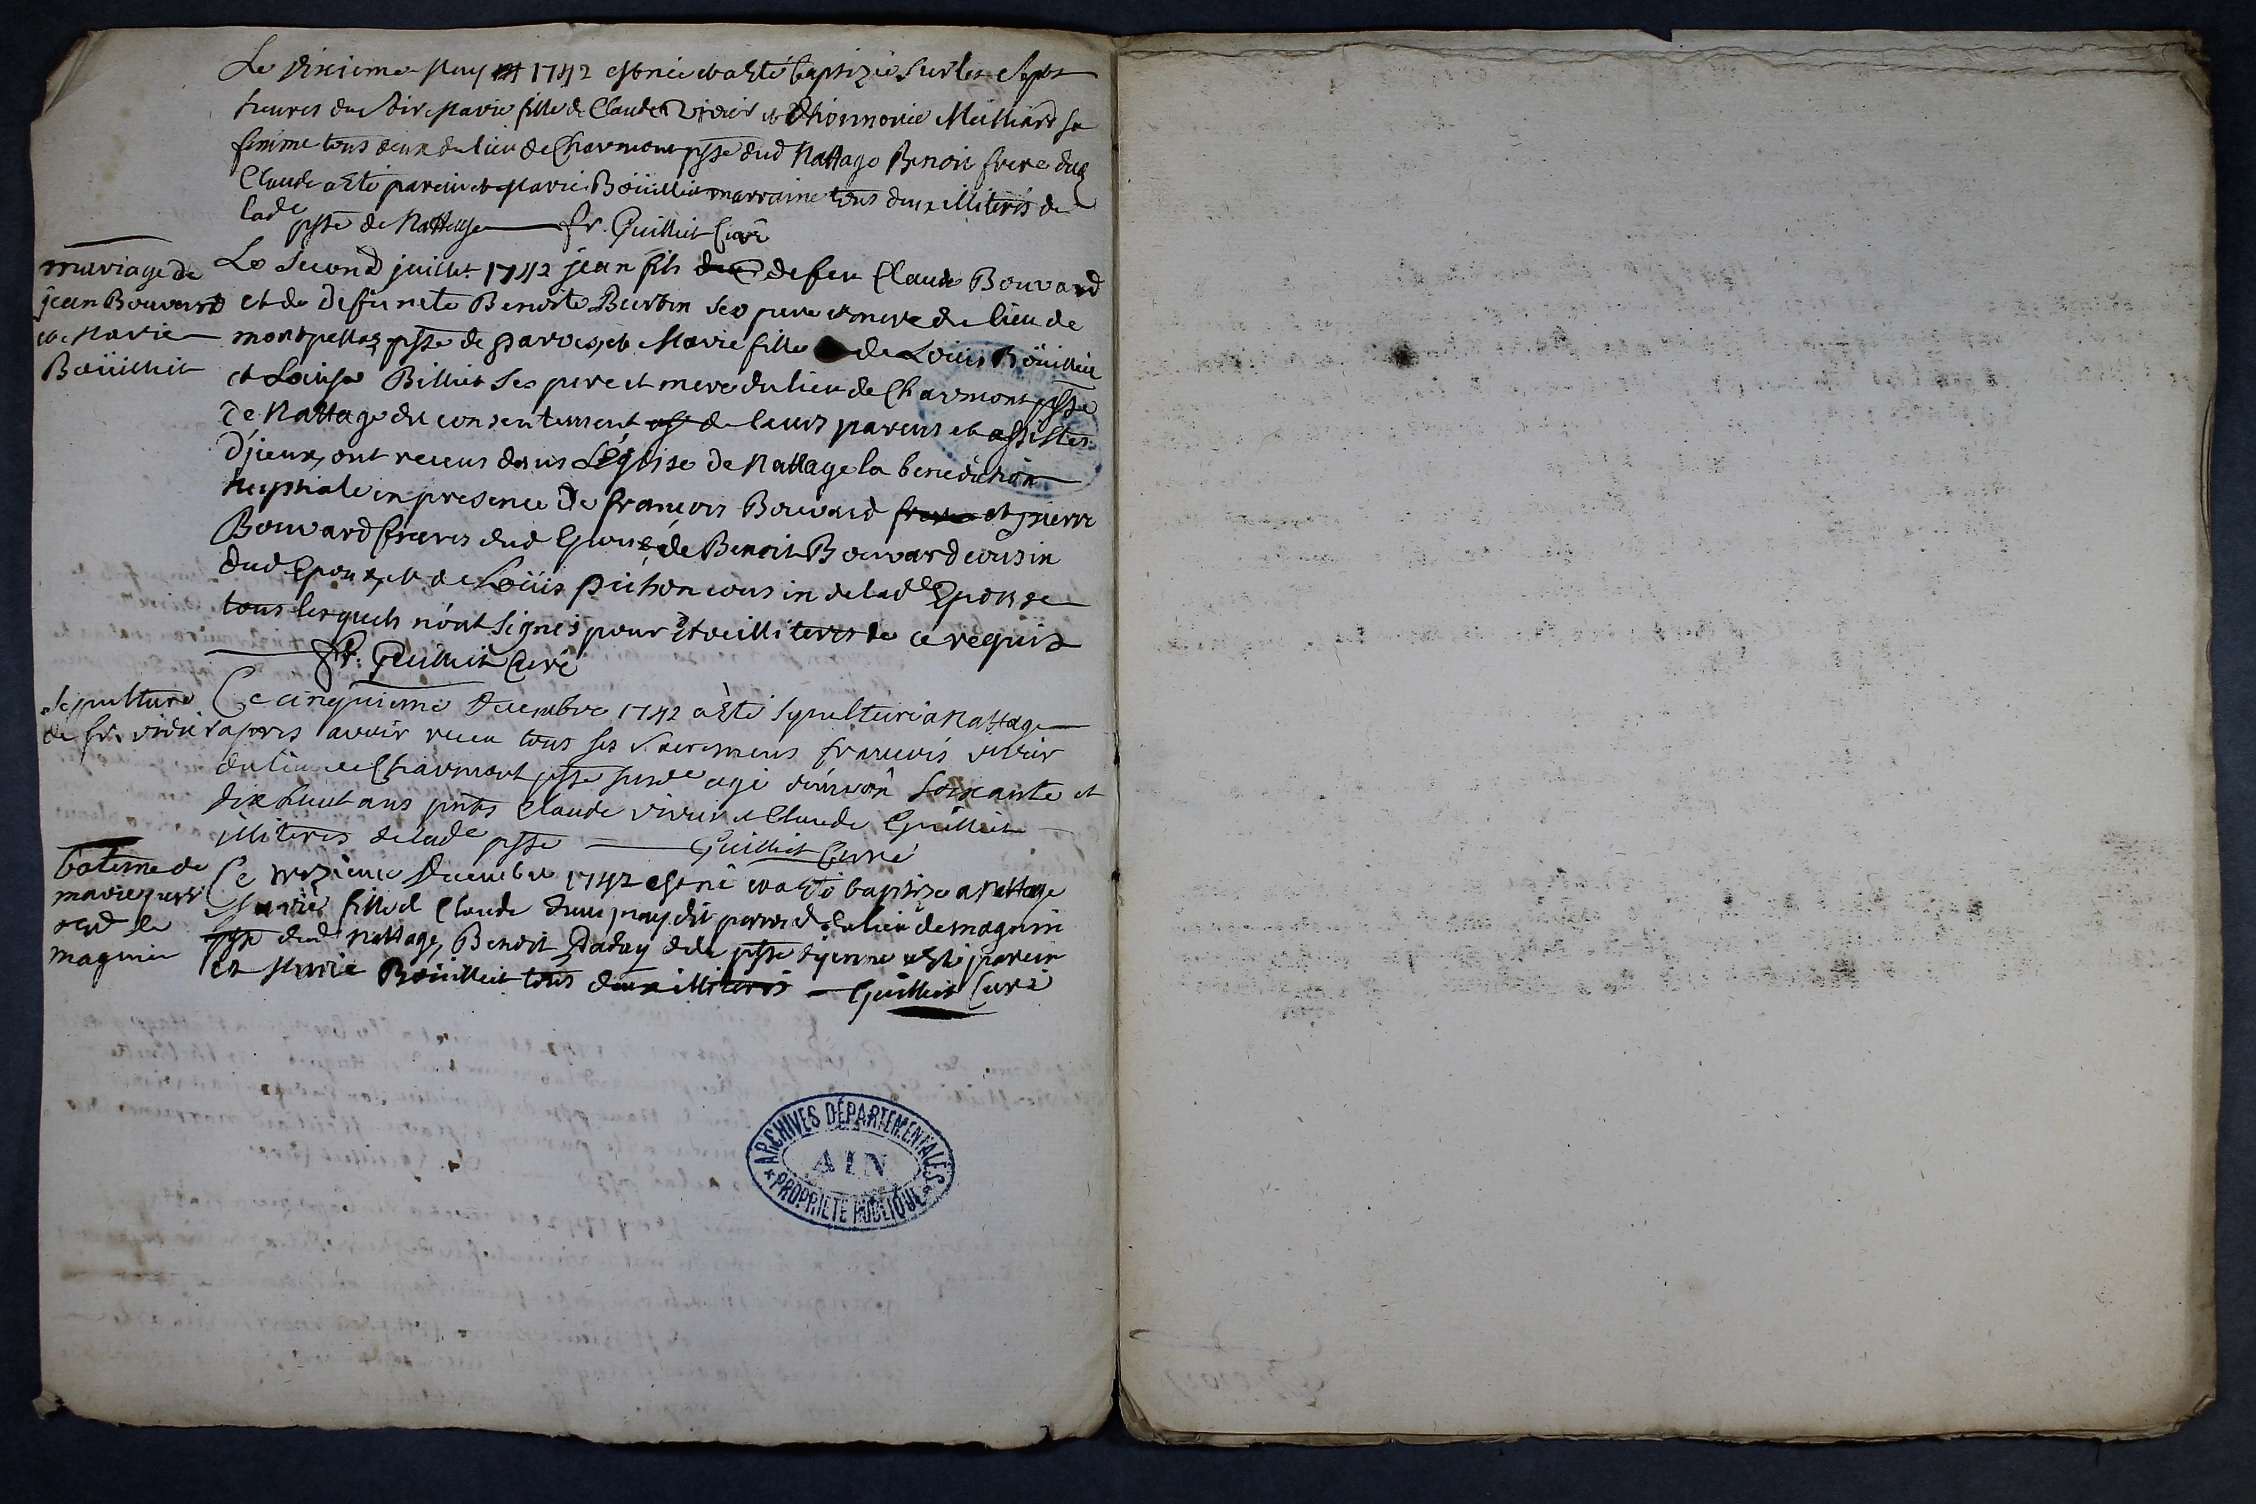 Le dixieme may 1742 est née et a Eté baptizée sur les sept
heures du soir Marie fille de Claude Vidier et dhonnorée Meilliard sa
femme tous deux du lieu de Charmont psse dud Nattage Benoit frere dud
Claude a Eté parein et Marie Boüilliet marraine tous deux illiterés de
lade psse de Nattage fr. Guilliet Curé
mariage de
jean Bouvard
et Marie
Boüilliet
Le Second juillet 1742 jean fils de feu Claude Bouvard
et de deffunete Benoite Burtin ses pere et mere du lieu de
montpellaz psse de parves, et Marie fille de Loüis Boüilliet
et Louise Billiet ses pere et mere du lieu de Charmont psse
de Nattage du consentement de leurs parens et assistes
d'jceux, ont receus dans L'Eglise de Nattage la benediction
nuptiale en presence de françois Bouvard et pierre
Bouvard freres dud Epoux, de Benoit Bouvard cousin
dud Epoux, et de Loüis pichon cousin de lade Epouse
tous lesquels n'ont signés pour Etre illiteres de ce requis
fr. Guilliet Curé
Sepulture
de fr. vidier
Ce cinquieme decembre 1742 a Eté sepulturé a Nattage
apres avoir receu tous ses sacremens francois vidier
du lieu de Charmont psse susde agé d'environ soixante et
dix huit ans pnts Claude vidier et Claude Guilliet
illiteres de lade psse Guilliet Curé
bateme de
marie perr
de
magnin
Ce decembre 1742 est né et a Eté baptizé a Nattage
Marie fille de Claude dit du lieu de magnin
psse dud Nattage, Benoit de la psse d'yenne a Eté parein
et Marie Boüilliet tous deux illiterés Guilliet Curé
ARCHIVES DÉPARTEMENTALES
AIN
PROPRIÉTÉ PUBLIQUE